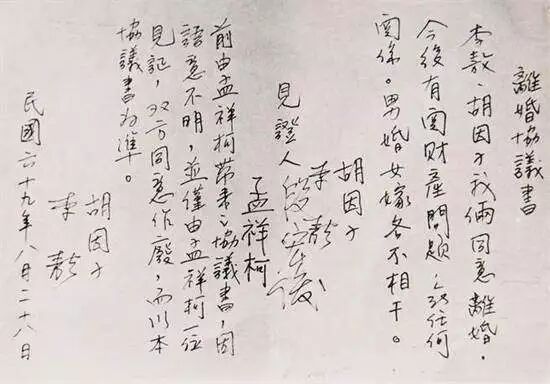 離婚協議書
李敖、胡因子我倆同意離婚，
今後有關財產問題，與任何
關係。男婚女嫁各不相干。
胡因子
李敖
見證人
孟祥柯
前由孟祥柯帶來之協議書，因
語意不明，並僅由孟祥柯一位
見証，双方同意作廢，而以本
協議書為準。
胡因子
李敖
民國六十九年八月二十八日